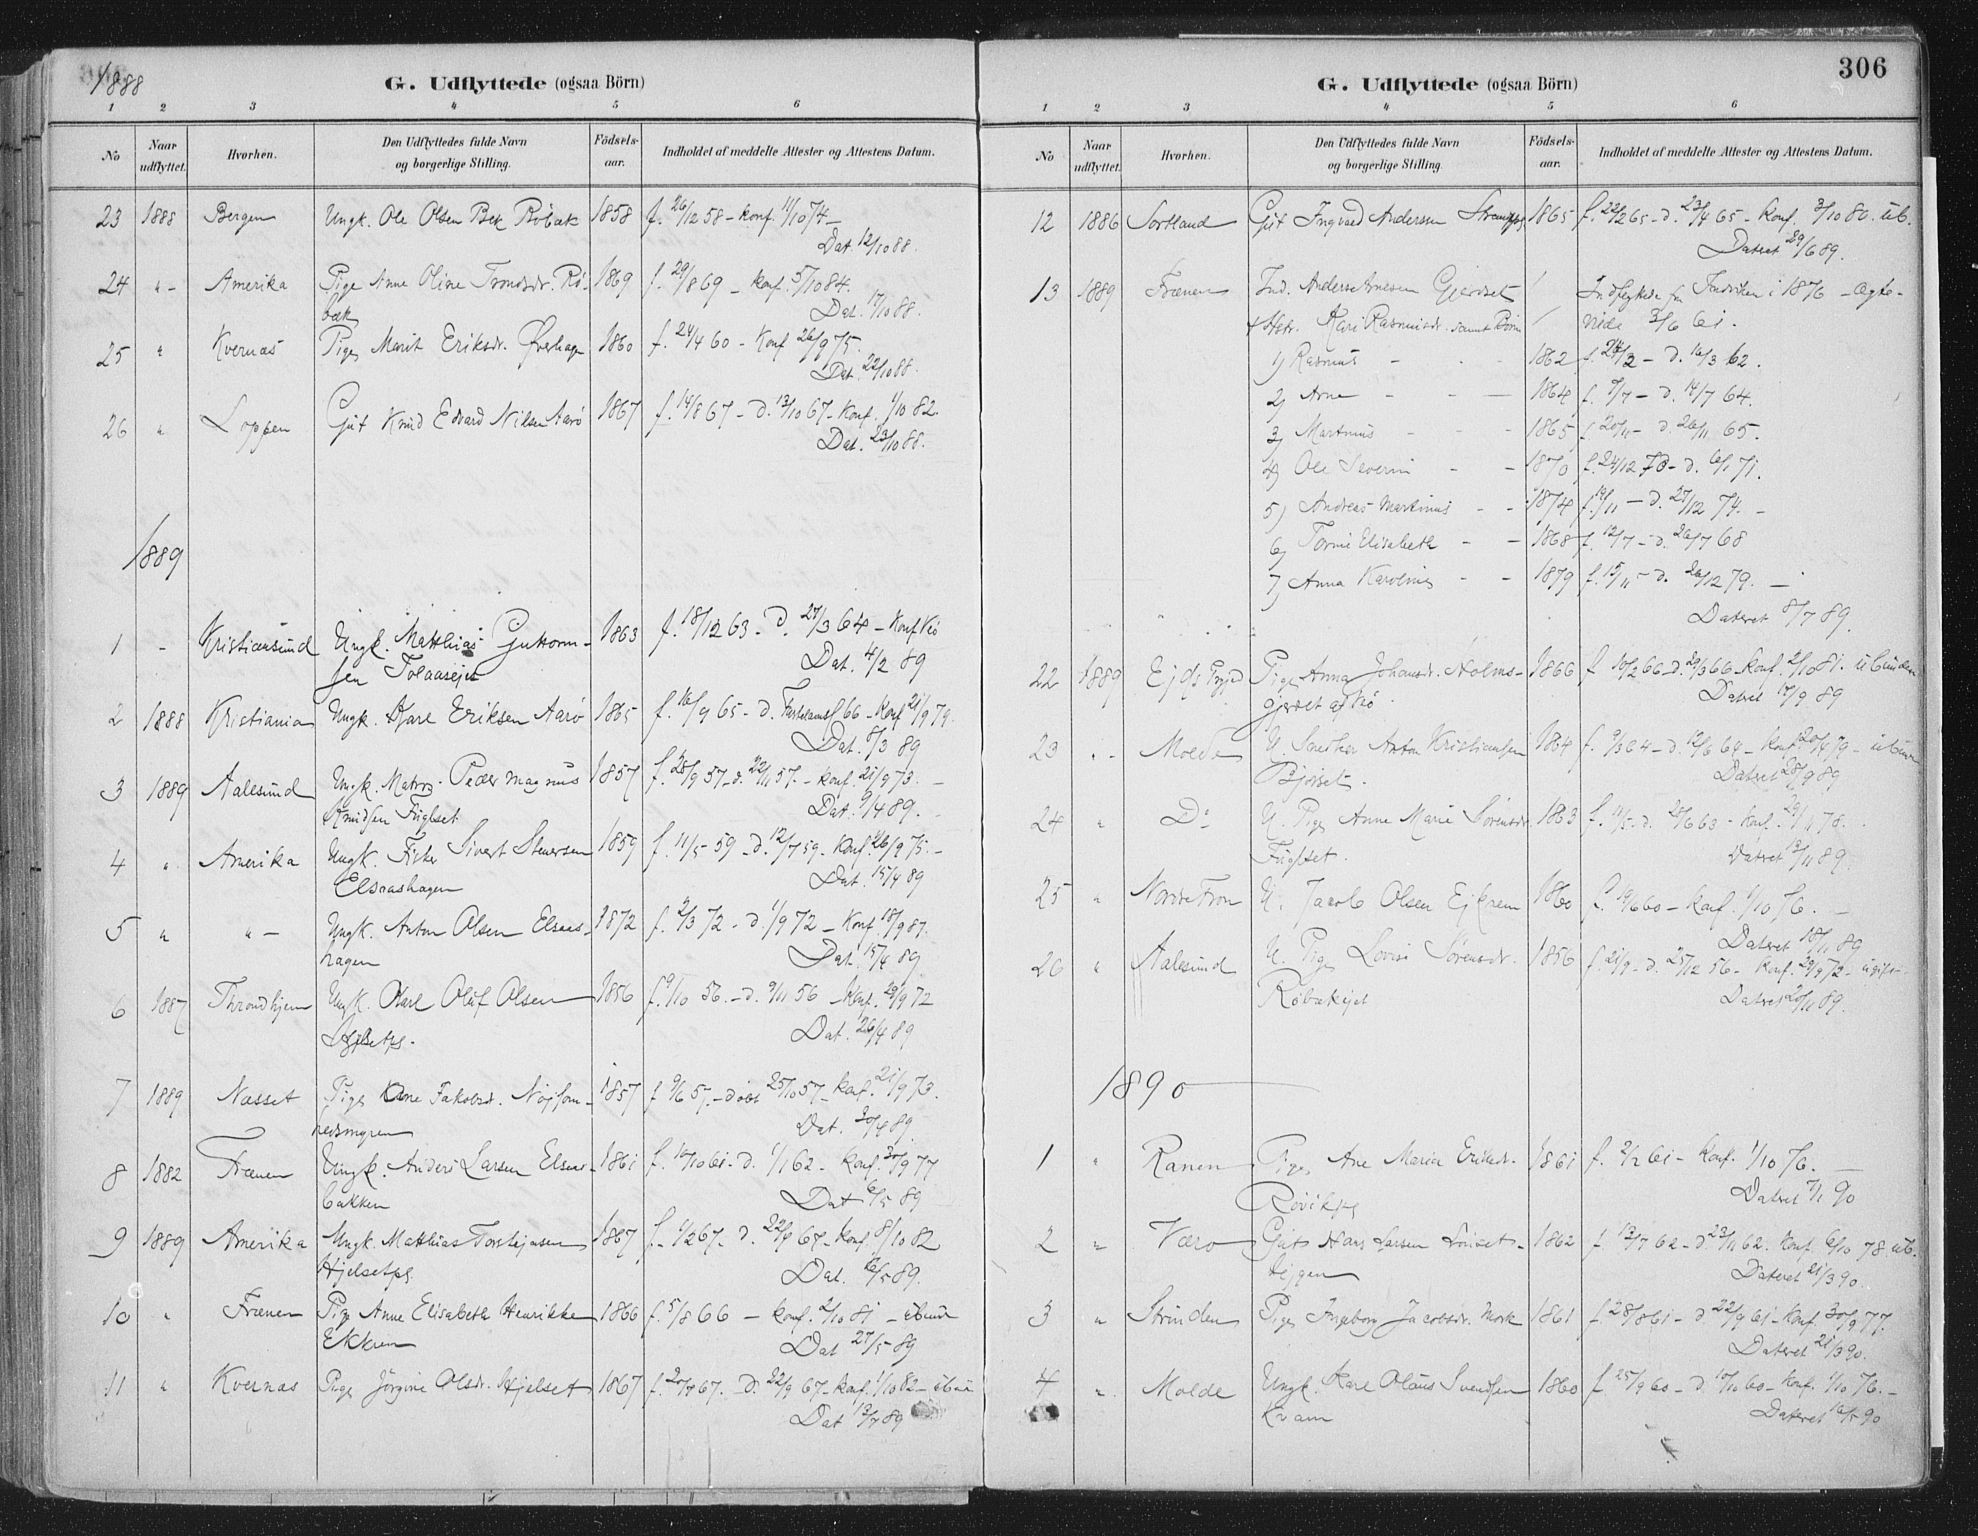 1888
G. Udflyttede (ogsaa Börn)
1 2 3 4 5 6
No Naar udflyttet. Hvorhen. Den Udflyttedes fulde Navn og borgerlige Stilling. Födsels-aar. Indholdet af meddelte Attester og Attestens Datum.
23 1888 Bergen Ungk. Ole Olsen Røbæk 1858 f. 26/12 58 - konf. 11/10 74 -
Dat. 12/10 88.
24 " - Amerika Pige Anne Oline Trondsdr. Rø- 1869 f. 29/8 69 - konf. 5/10 84.
bæk Dat. 17/10 88.
25 " Kvernæs Pige Marit Eriksdr. Øverhagen 1860 f. 24/4 60 - Konf 26/9 75.
Dat. 22/10 88.
26 " Loppen Gut Knud Edvard Nilsen Aarø 1867 f. 14/8 67 - d. 13/10 67 - Konf. 1/10 82.
Dat. 23/10 88.
1889
1 - Kristiansund Ungk. Matthias Guttorm- 1863 f. 18/12 63 - d. 27/3 64 - Konf
sen Tolaasejet Dat. 4/2 89
2 1888 Kristiania Ungk. Karl Eriksen Aarø 1865 f. 16/9 65 - d. 66 - Konf 21/9 79.
Dat. 8/3 89
3 1889 Aalesund Ungk. Matros Peder Magnus 1857 f. 28/9 57 - d. 22/11 57. - konf. 21/9 73. -
Knudsen Fuglset Dat. 9/4 89.
4 " Amerika Ungk. Fisker Sivert Steversen 1859 f. 11/5 59 - d. 12/7 59 - Konf. 26/9 75. -
Elsaashagen Dat. 15/4 89
5 " " - Ungk. Anton Olsen Elsaas- 1872 f. 2/3 72 - d. 1/9 72 - Konf. 18/9 87.
hagen Dat. 15/4 89
6 1887 Throndhjem Ungk. Karl Oluf Olsen 1856 f. 9/10 56. - d. 9/11 56 - Konf. 29/9 72
Hjelsetpl. Dat. 26/4 89
7 1889 Næsset Pige Ane Jakobsd. Nøjsom- 1857 f 9/6 57. - døbt 25/10 57 - Konf. 21/9 73.
hedsmyren Dat. 30/4 89.
8 1882 Frænen Ungk. Anders Larsen Elsaas- 1861 f. 10/10 61 - d. 1/1 62 - Konf. 30/9 77
bakken Dat 6/5 89
9 1889 Amerika Ungk. Matthias Torstejnsen 1867 f. 1/2 67. d. 22/4 67 - Konf. 8/10 82
Hjelsetpl. Dat. 16/5 89.
10 " Frænen Pige Anne Elisabeth Henrikke 1866 f. 5/8 66 - konf. 2/10 81 - ubund
Ekkren Dat 27/5 89
11 " Kvernæs Pige Jörgine Olsdr. Hjelset 1867 f. 20/7 67. d. 22/9 67 - konf. 1/10 82 -
Dat 13/7 89
306
G. Udflyttede (ogsaa Börn)
1 2 3 4 5 6
No Naar udflyttet. Hvorhen. Den Udflyttedes fulde Navn og borgerlige Stilling. Födsels-aar. Indholdet af meddelte Attester og Attestens Datum.
12 1886 Sortland Gut Ingvard Anderssen 1865 f. 22/2 65 - d. 23/4 65 - Konf. 3/10 80. ub.
Dateret 29/6 89.
13 1889 Frænen Ind. Anders Arnesen Gjerdset Indflyttede fra i 1876 - Ægte-
+ Hstr. Kari Rasmusdr. samt Börn viede 3/6 61.
1) Rasmus - - 1862 f. 24/2 - d. 16/3 62.
2) Arne - - 1864 f. 7/7 - d. 14/7 64.
3) Martinus - - 1865 f 20/11 - d. 26/11 65.
4) Ole Severin - - 1870 f. 24/12 70 - d. 6/1 71.
5) Andreas Martinus - - 1874 f. 14/11 - d. 27/12 74. -
6) Elisabeth - - 1868 f. 12/7 - d. 26/7 68
7) Anna Karoline - - 1879 f. 15/11 - d. 26/12 79. -
Dateret 8/7 89.
22 1889 Pige Anna Johansdr. Holms- 1866 f 10/2 66 - d. 29/3 66. konf. 2/10 81. ubunden
gjerdet Dateret 17/9 89
23 " - Molde U. Snedker Anton Kristiansen 1864 f. 9/3 64 - d. 12/6 64 - Konf 20/4 79 -
Bjørset. Dateret 28/9 89
24 " Do U. Pige Anne Marie Sørensdr. 1863 f. 11/5 - d. 28/6 63 - Konf. 29/9 78.
Fuglset. Dateret 13/11 89.
25 " Nordre Fron U. Jacob Olsen Ejkrem 1860 f. 19/6 60 - Konf. 1/10 76. -
Dateret 18/11 89
26 " Aalesund U. Pige Lovise Sørensdr. 1856 f. 21/9 - d. 25/12 56 - Konf. 29/9 72 - ugift
Røbækejet Dateret 20/11 89.
1890
1 " Ranen Pige Ane Maria Eriksdr. 1861 f. 2/2 61 - Konf. 1/10 76. -
Røvikpl. Dateret 7/1 90
2 " Værø Gut Hans Larsen Lönset- 1862 f 13/7 62 - d. 23/11 62. Konf. 6/10 78. ub.
tejgen Dateret 21/3 90.
3 " Strinden Pige Ingeborg Jacobsdr. Mork 1861 f 28/8 61 - d. 22/9 61 - Konf. 30/9 77.
Dateret 21/3 90.
4 " Molde Ungk. Karl Olaus Svendsen 1860 f 25/9 60 - d. 17/10 60 - Konf. 1/10 76. -
Kvam Dateret 16/5 90